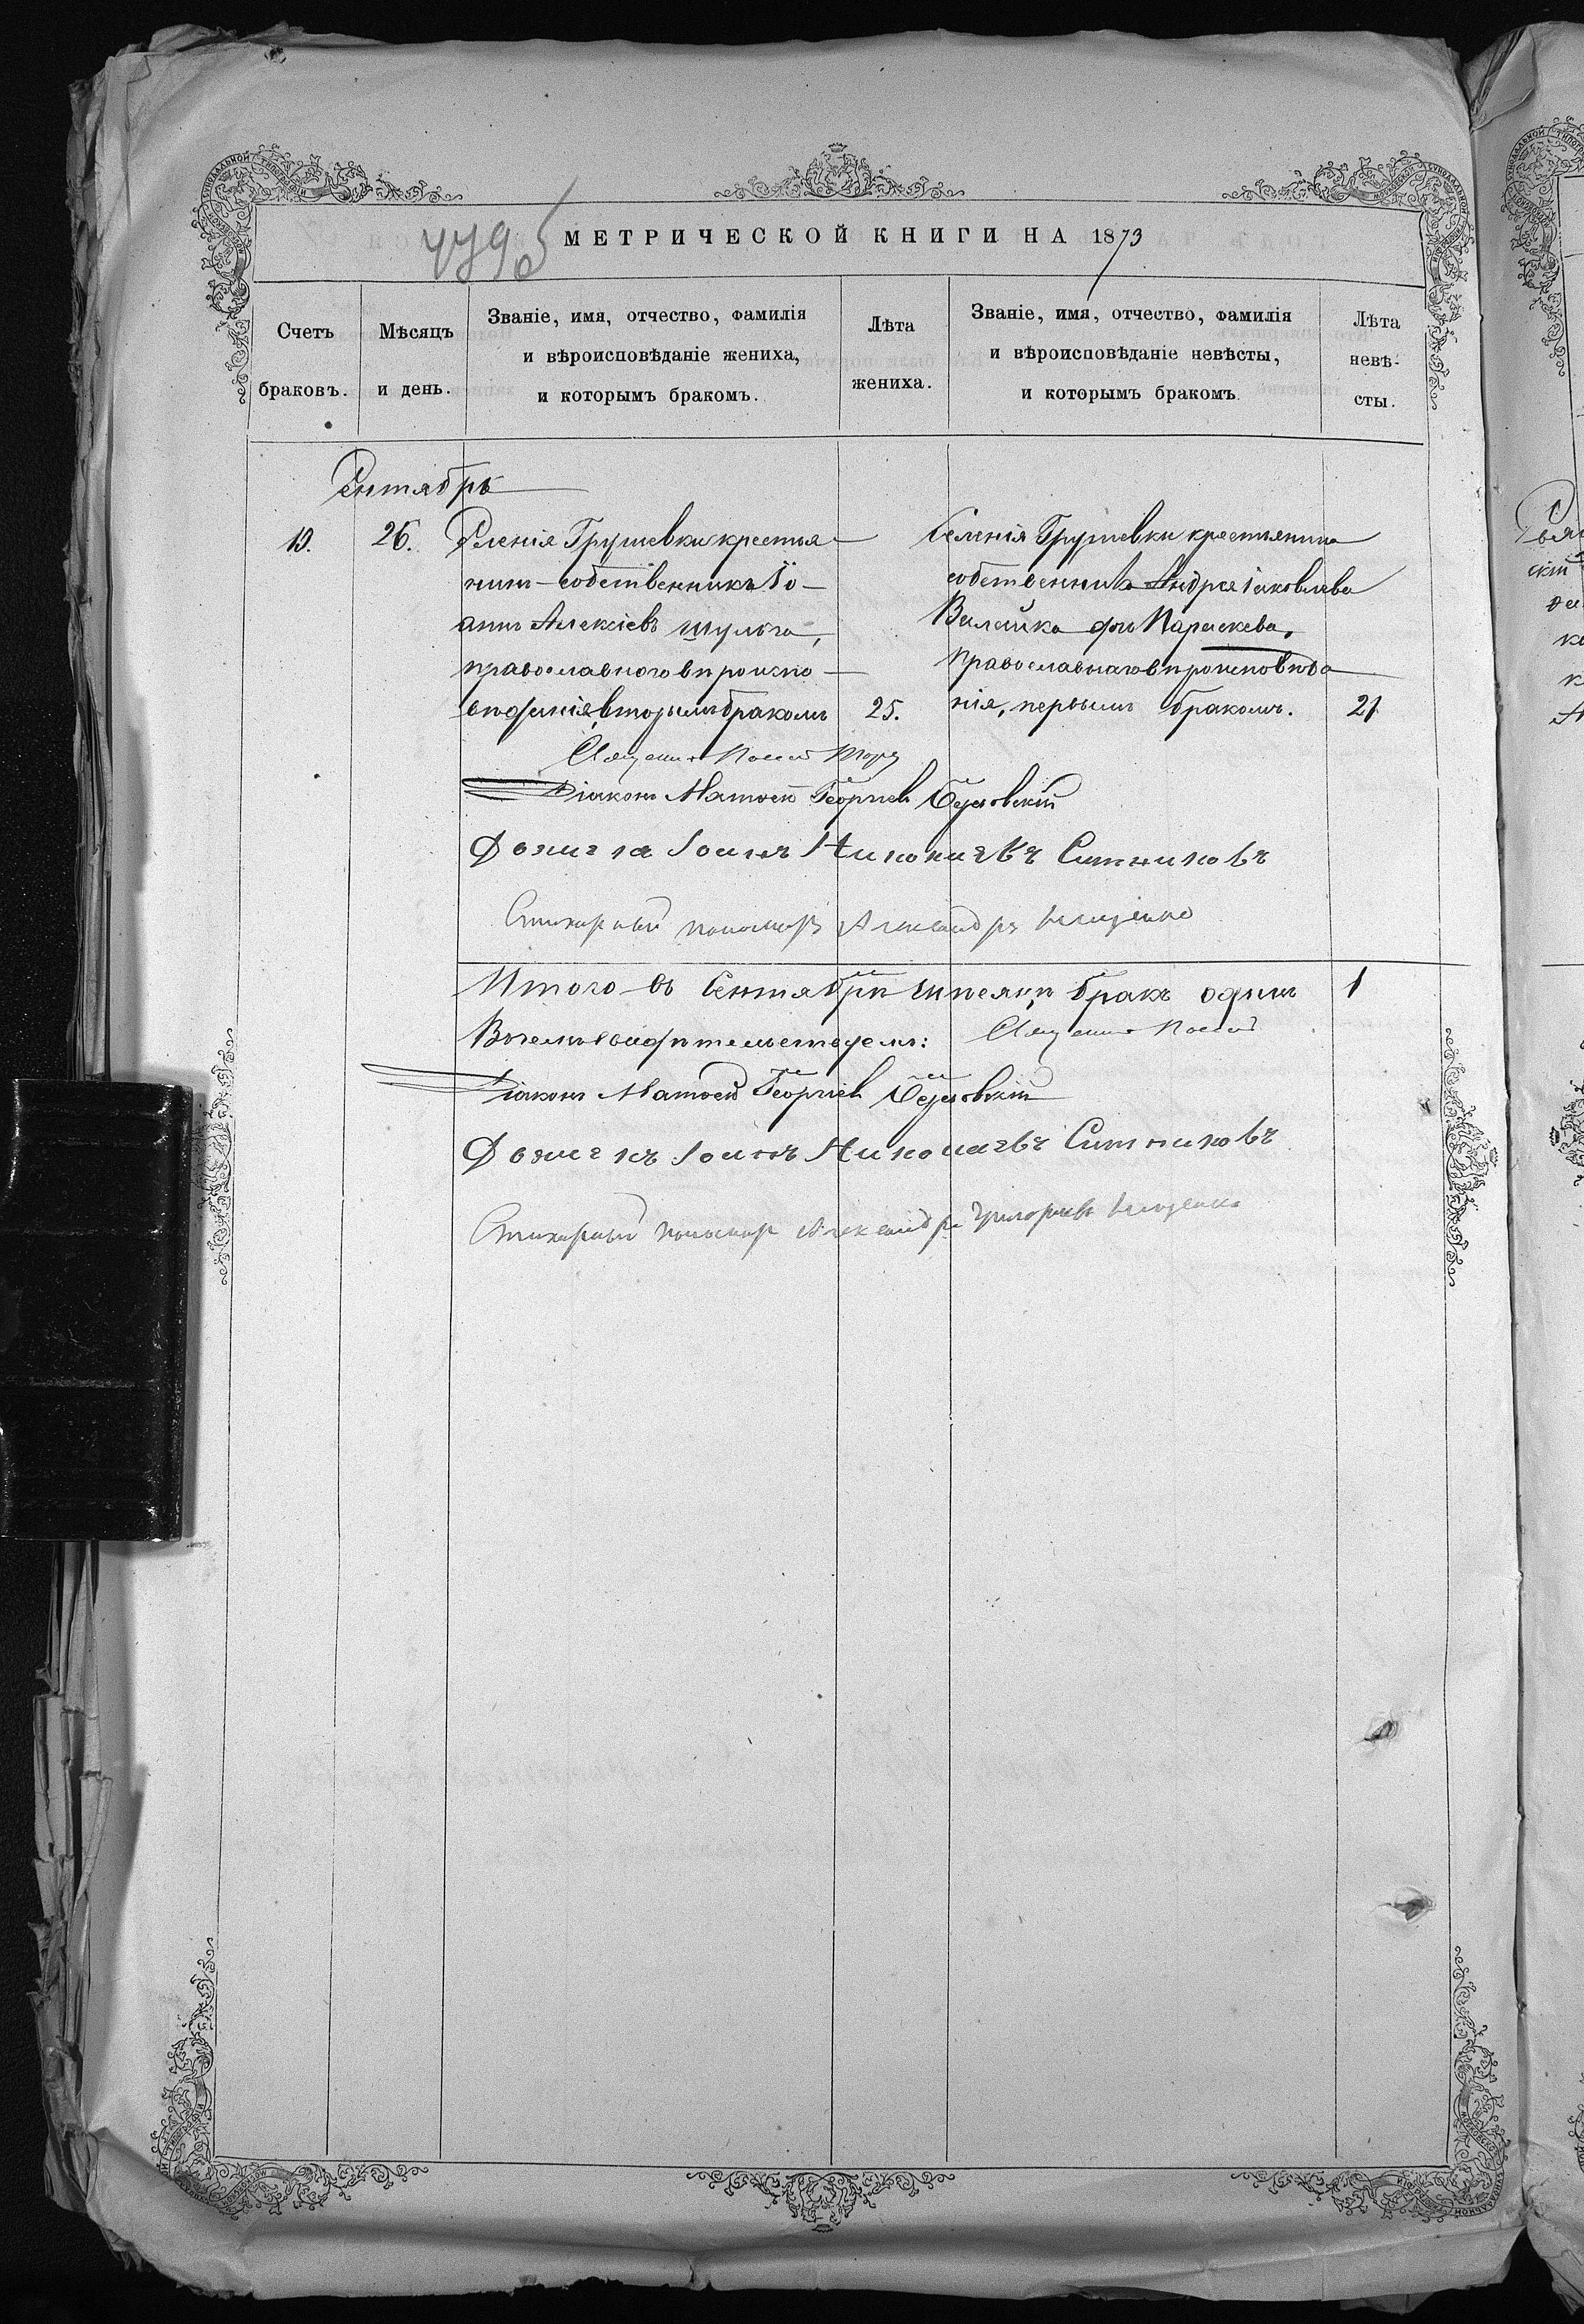 МЕТРИЧЕСКОЙ КНИГИ НА 1873
Счетъ браковъ.
Мѣсяцъ и день.
Званіе, имя, отчество, фамилія
и вѣроисповѣданіе жениха,
и которымъ бракомъ.
Лѣта
жениха.
Званіе, имя, отчество, фамилія
и вѣроисповѣданіе невѣсты,
и которымъ бракомъ.
Лѣта
невѣ-
сты.
Сентябрь
26.
Селенія Грушевки крестья-
нинъ-собственникъ Іо-
аннъ Алексіевъ Шульга,
православного вѣроиспо-
вѣданія, вторымъ бракомъ
25.
Селенія Грушевки крестьянина
собственника Андрея Іаковлева
дочь Параскева,
православнаго вѣроисповѣда
нія, первымъ бракомъ.
21
Діаконъ Матѳей Георгіев
Іоаннъ Ситниковъ
Стихарный пономарь Александръ
Итого въ Сентябрѣ мѣсяцѣ бракъ одинъ
1
Въ чемъ и свидѣтельствуемъ:
Діаконъ Матѳей Георгіев
Іоаннъ Ситниковъ
Стихарный пономарь Александръ Григорьев